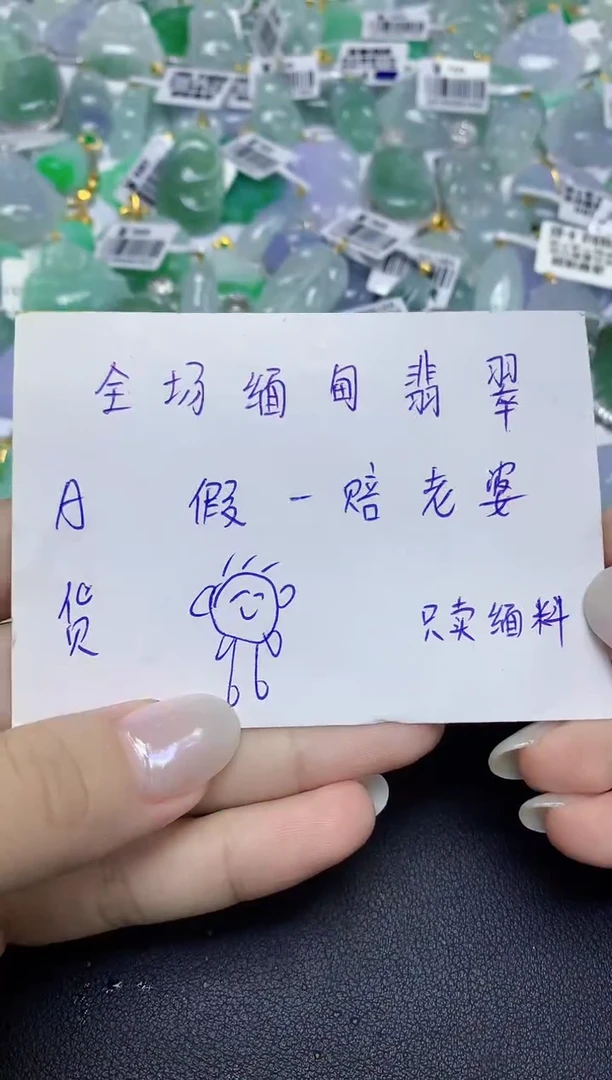 全场缅甸翡翠
A 假一赔老婆
货 只卖缅料